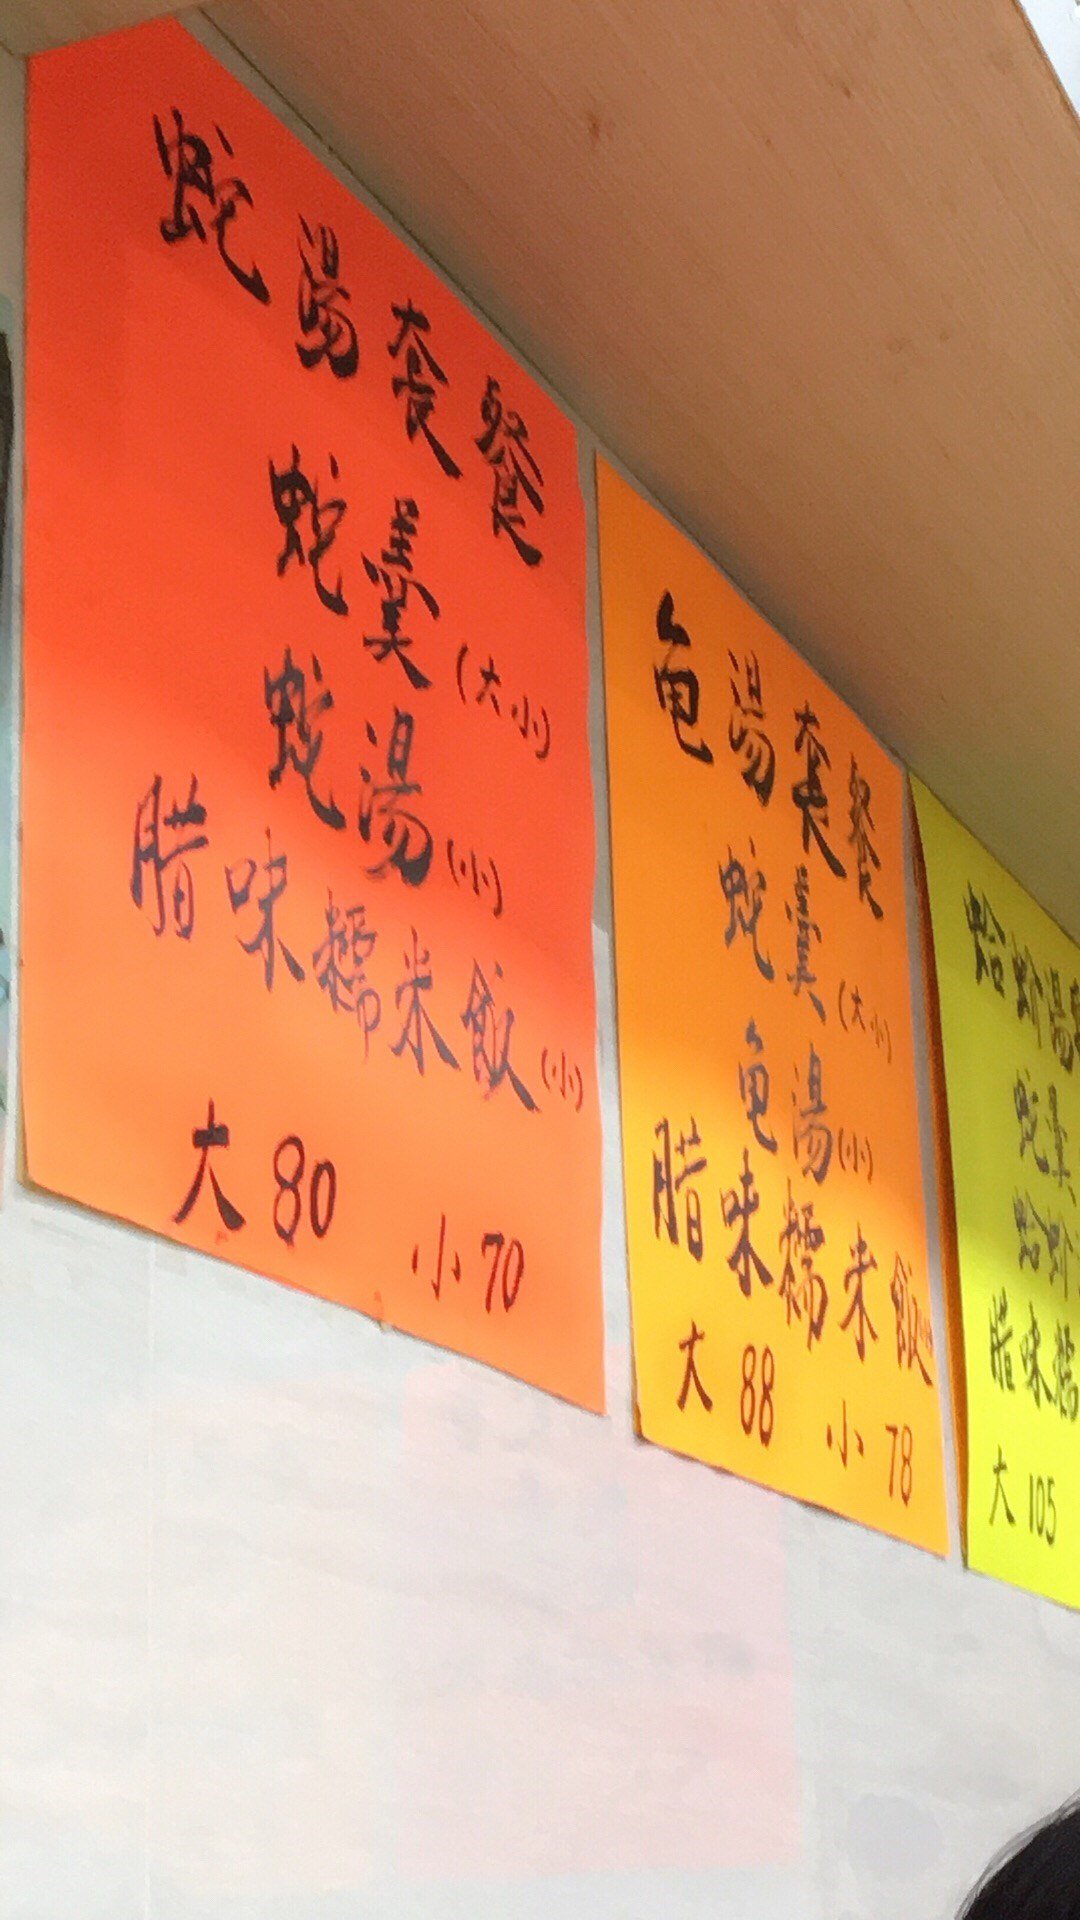 蛇湯套餐
蛇羹(大小)
蛇湯(小)
腊味糯米飯(小)
大80 小70
龟湯套餐
蛇羹(大小)
龟湯(小)
腊味糯米飯(小)
大88 小78
蛤蚧湯
蛇羹
蛤蚧
腊味糯
大105